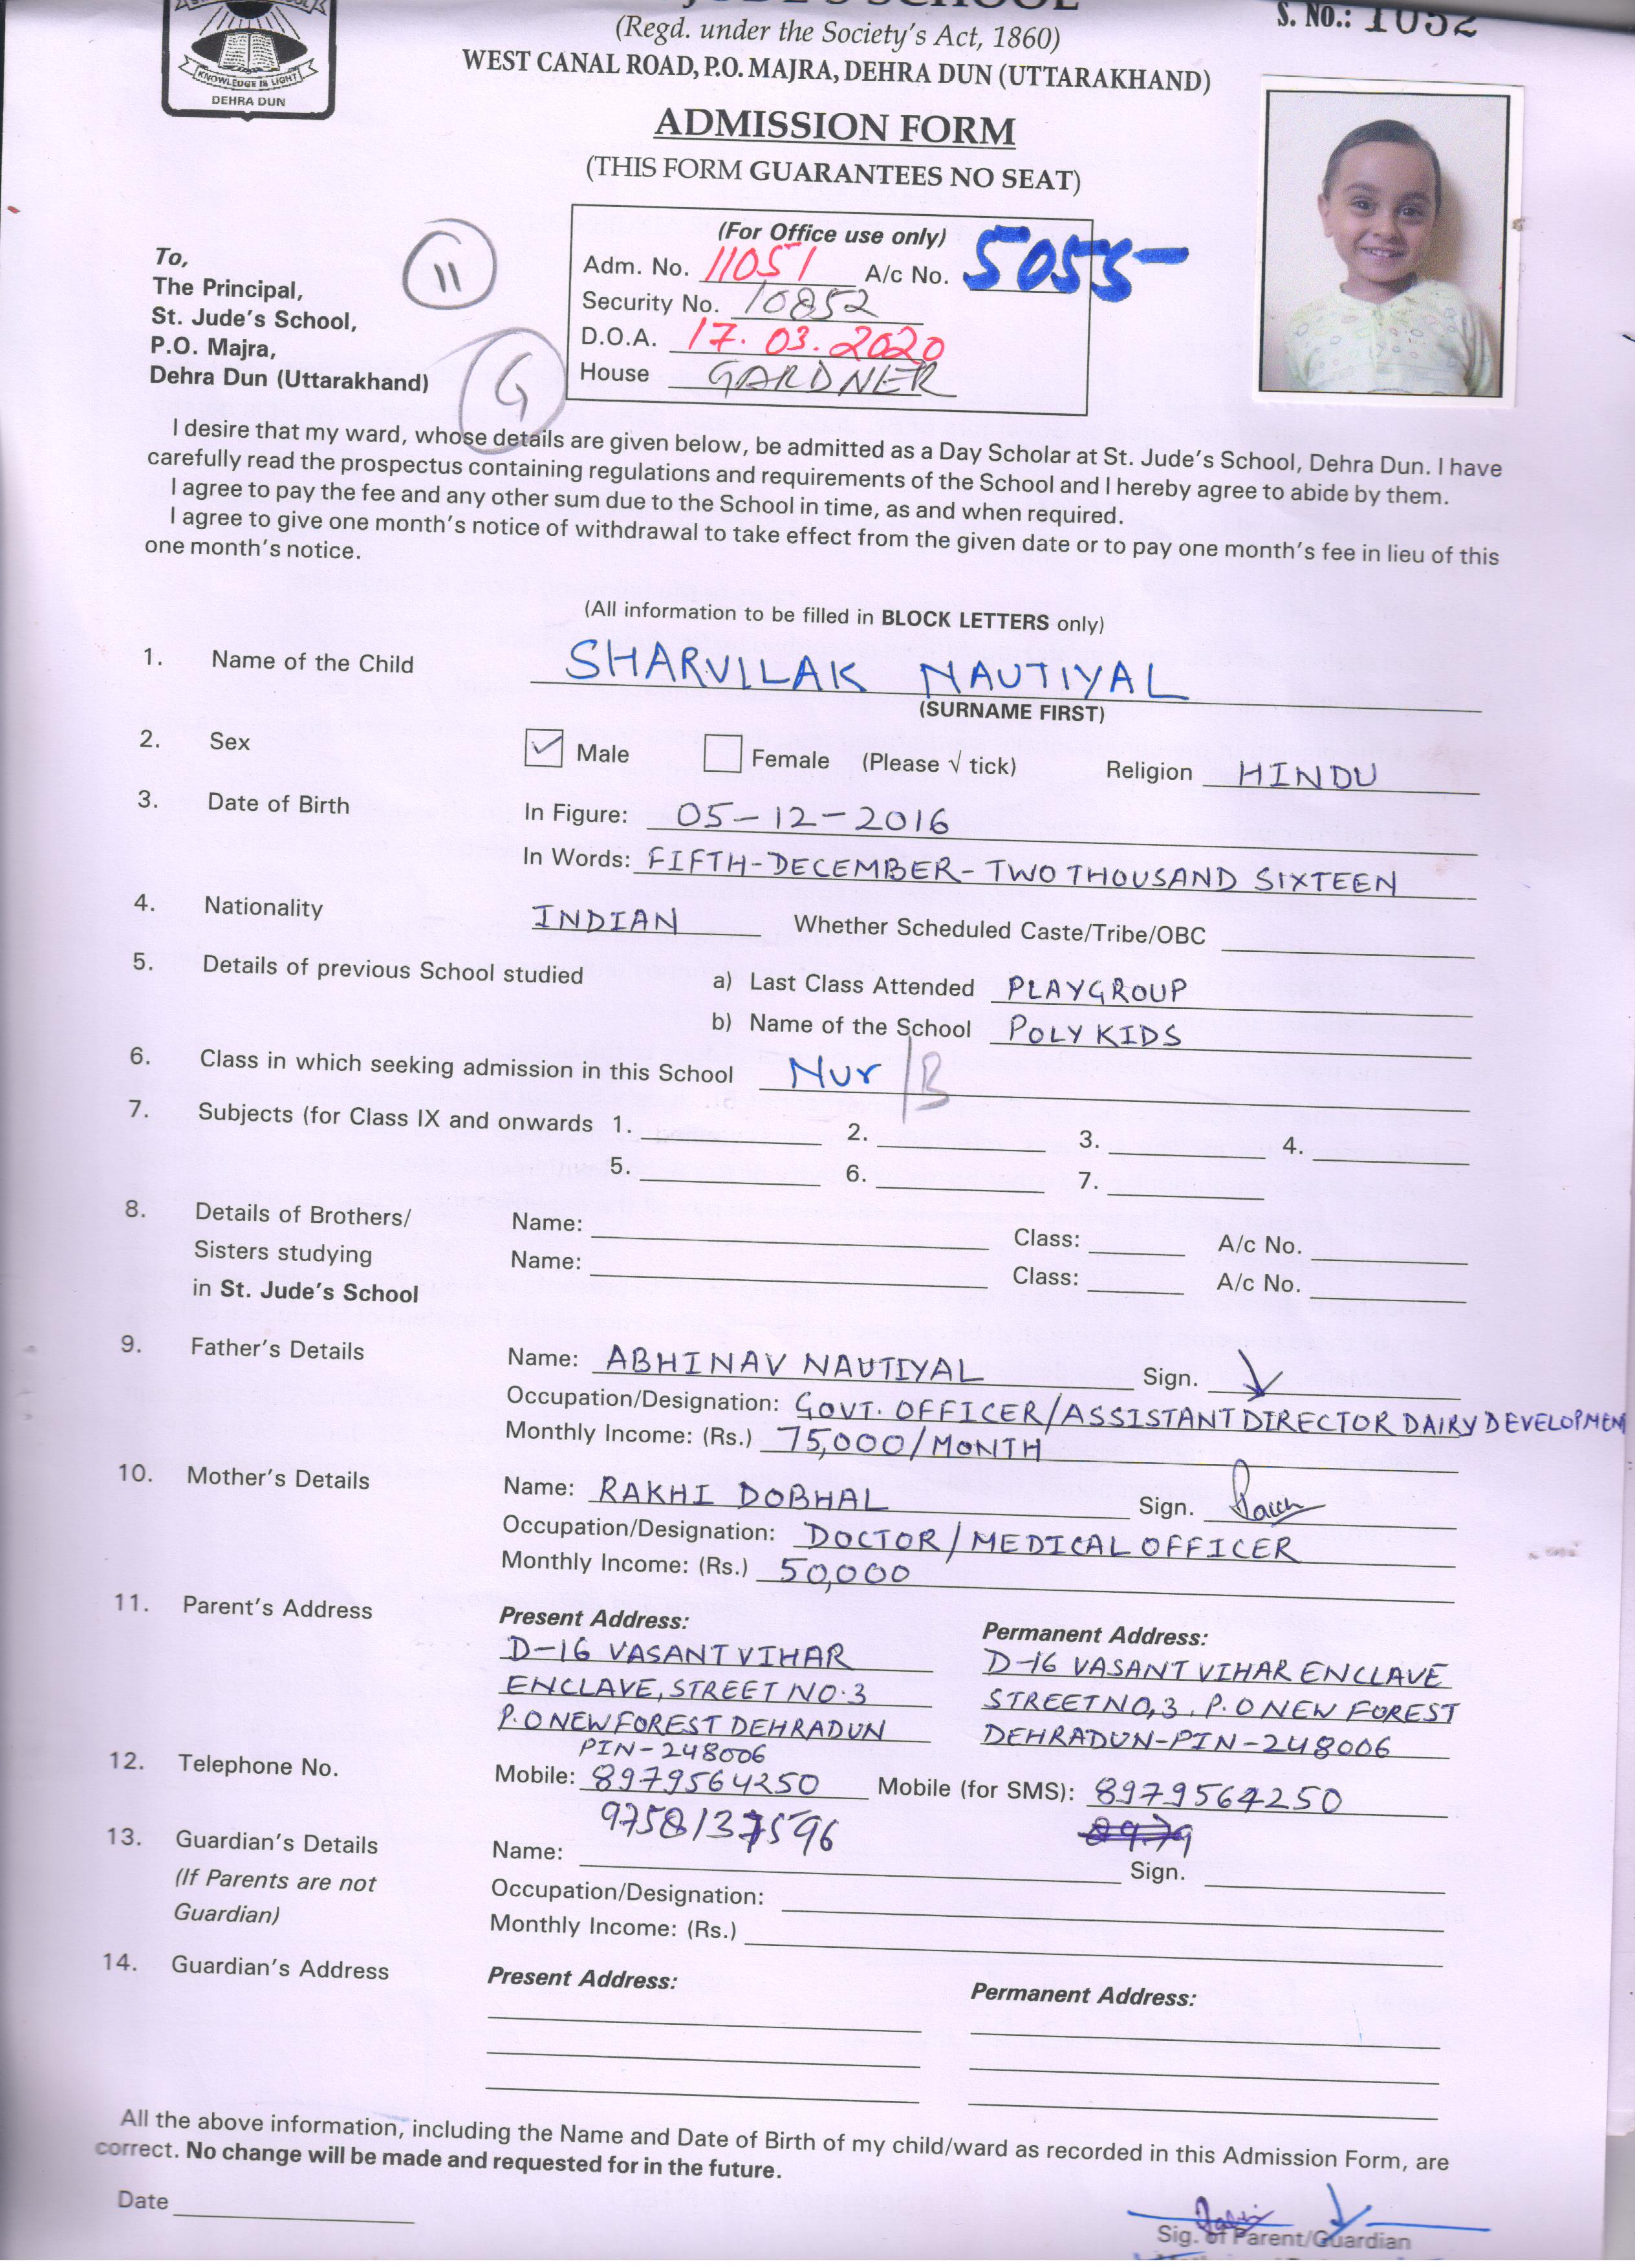 KNOWLEDGE IS LIGHT
DEHRA DUN
S. No.: 1052
(Regd. under the Society's Act, 1860)
WEST CANAL ROAD, P.O. MAJRA, DEHRA DUN (UTTARAKHAND)
ADMISSION FORM
(THIS FORM GUARANTEES NO SEAT)
To,
The Principal,
St. Jude's School,
P.O. Majra,
Dehra Dun (Uttarakhand)
11
G
(For Office use only)
Adm. No. 11051 A/c No. 5055
Security No. 10852
D.O.A. 17.03.2020
House GARDNER
I desire that my ward, whose details are given below, be admitted as a Day Scholar at St. Jude's School, Dehra Dun. I have
carefully read the prospectus containing regulations and requirements of the School and I hereby agree to abide by them.
I agree to pay the fee and any other sum due to the School in time, as and when required.
I agree to give one month's notice of withdrawal to take effect from the given date or to pay one month's fee in lieu of this
one month's notice.
(All information to be filled in BLOCK LETTERS only)
1. Name of the Child SHARVILAK NAUTIYAL
(SURNAME FIRST)
2. Sex Male Female (Please √ tick) Religion HINDU
3. Date of Birth In Figure: 05-12-2016
In Words: FIFTH-DECEMBER-TWO THOUSAND SIXTEEN
4. Nationality INDIAN Whether Scheduled Caste/Tribe/OBC
5. Details of previous School studied a) Last Class Attended PLAYGROUP
b) Name of the School POLY KIDS
6. Class in which seeking admission in this School Nur/B
7. Subjects (for Class IX and onwards 1. 2. 3. 4.
5. 6. 7.
8. Details of Brothers/ Name: Class: A/c No.
Sisters studying Name: Class: A/c No.
in St. Jude's School
9. Father's Details Name: ABHINAV NAUTIYAL Sign.
Occupation/Designation: GOVT. OFFICER/ASSISTANT DIRECTOR DAIRY DEVELOPMEN
Monthly Income: (Rs.) 75,000/MONTH
10. Mother's Details Name: RAKHI DOBHAL Sign.
Occupation/Designation: DOCTOR/MEDICAL OFFICER
Monthly Income: (Rs.) 50,000
11. Parent's Address Present Address: Permanent Address:
D-16 VASANT VIHAR D-16 VASANT VIHAR ENCLAVE
ENCLAVE, STREET NO.3 STREET NO,3. P.O NEW FOREST
P.O NEW FOREST DEHRADUN DEHRADUN-PIN-248006
PIN-248006
12. Telephone No. Mobile: 8979564250 Mobile (for SMS): 8979564250
9758137596 8979
13. Guardian's Details Name: Sign.
(If Parents are not Occupation/Designation:
Guardian) Monthly Income: (Rs.)
14. Guardian's Address Present Address: Permanent Address:
All the above information, including the Name and Date of Birth of my child/ward as recorded in this Admission Form, are
correct. No change will be made and requested for in the future.
Date
Sig. of Parent/Guardian